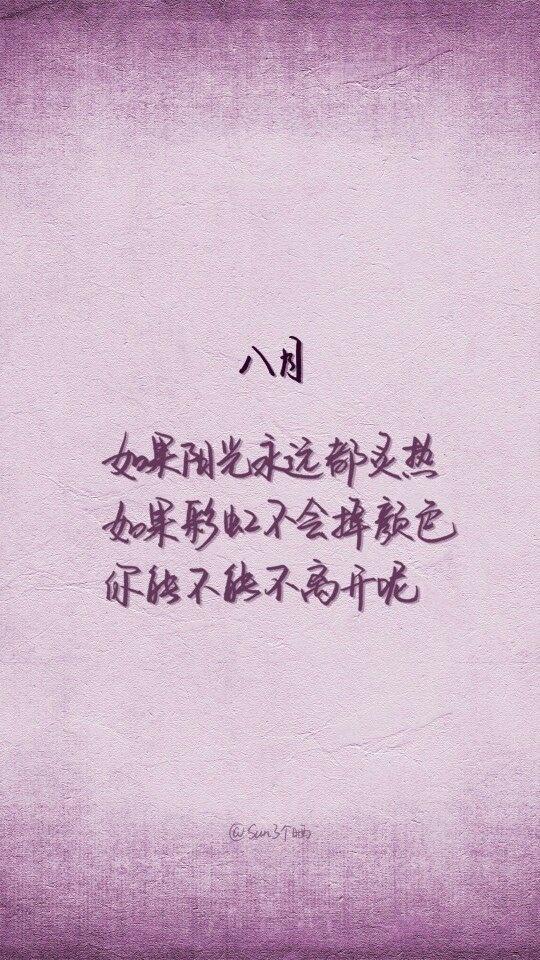 八月
如果阳光永远都炙热
如果彩虹不会掉颜色
你能不能不离开呢
@Sun3个